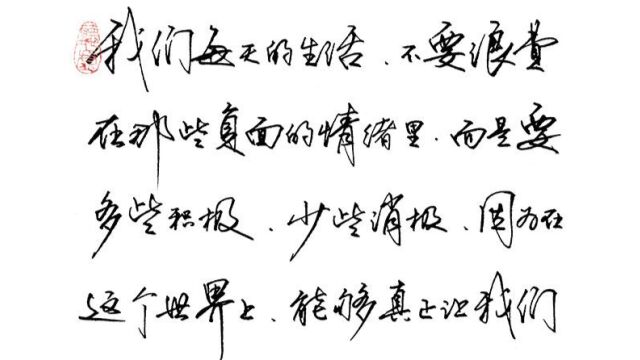 我们每天的生活、不要浪费
在那些负面的情绪里、而是要
多些积极、少些消极、因为在
这个世界上、能够真正让我们